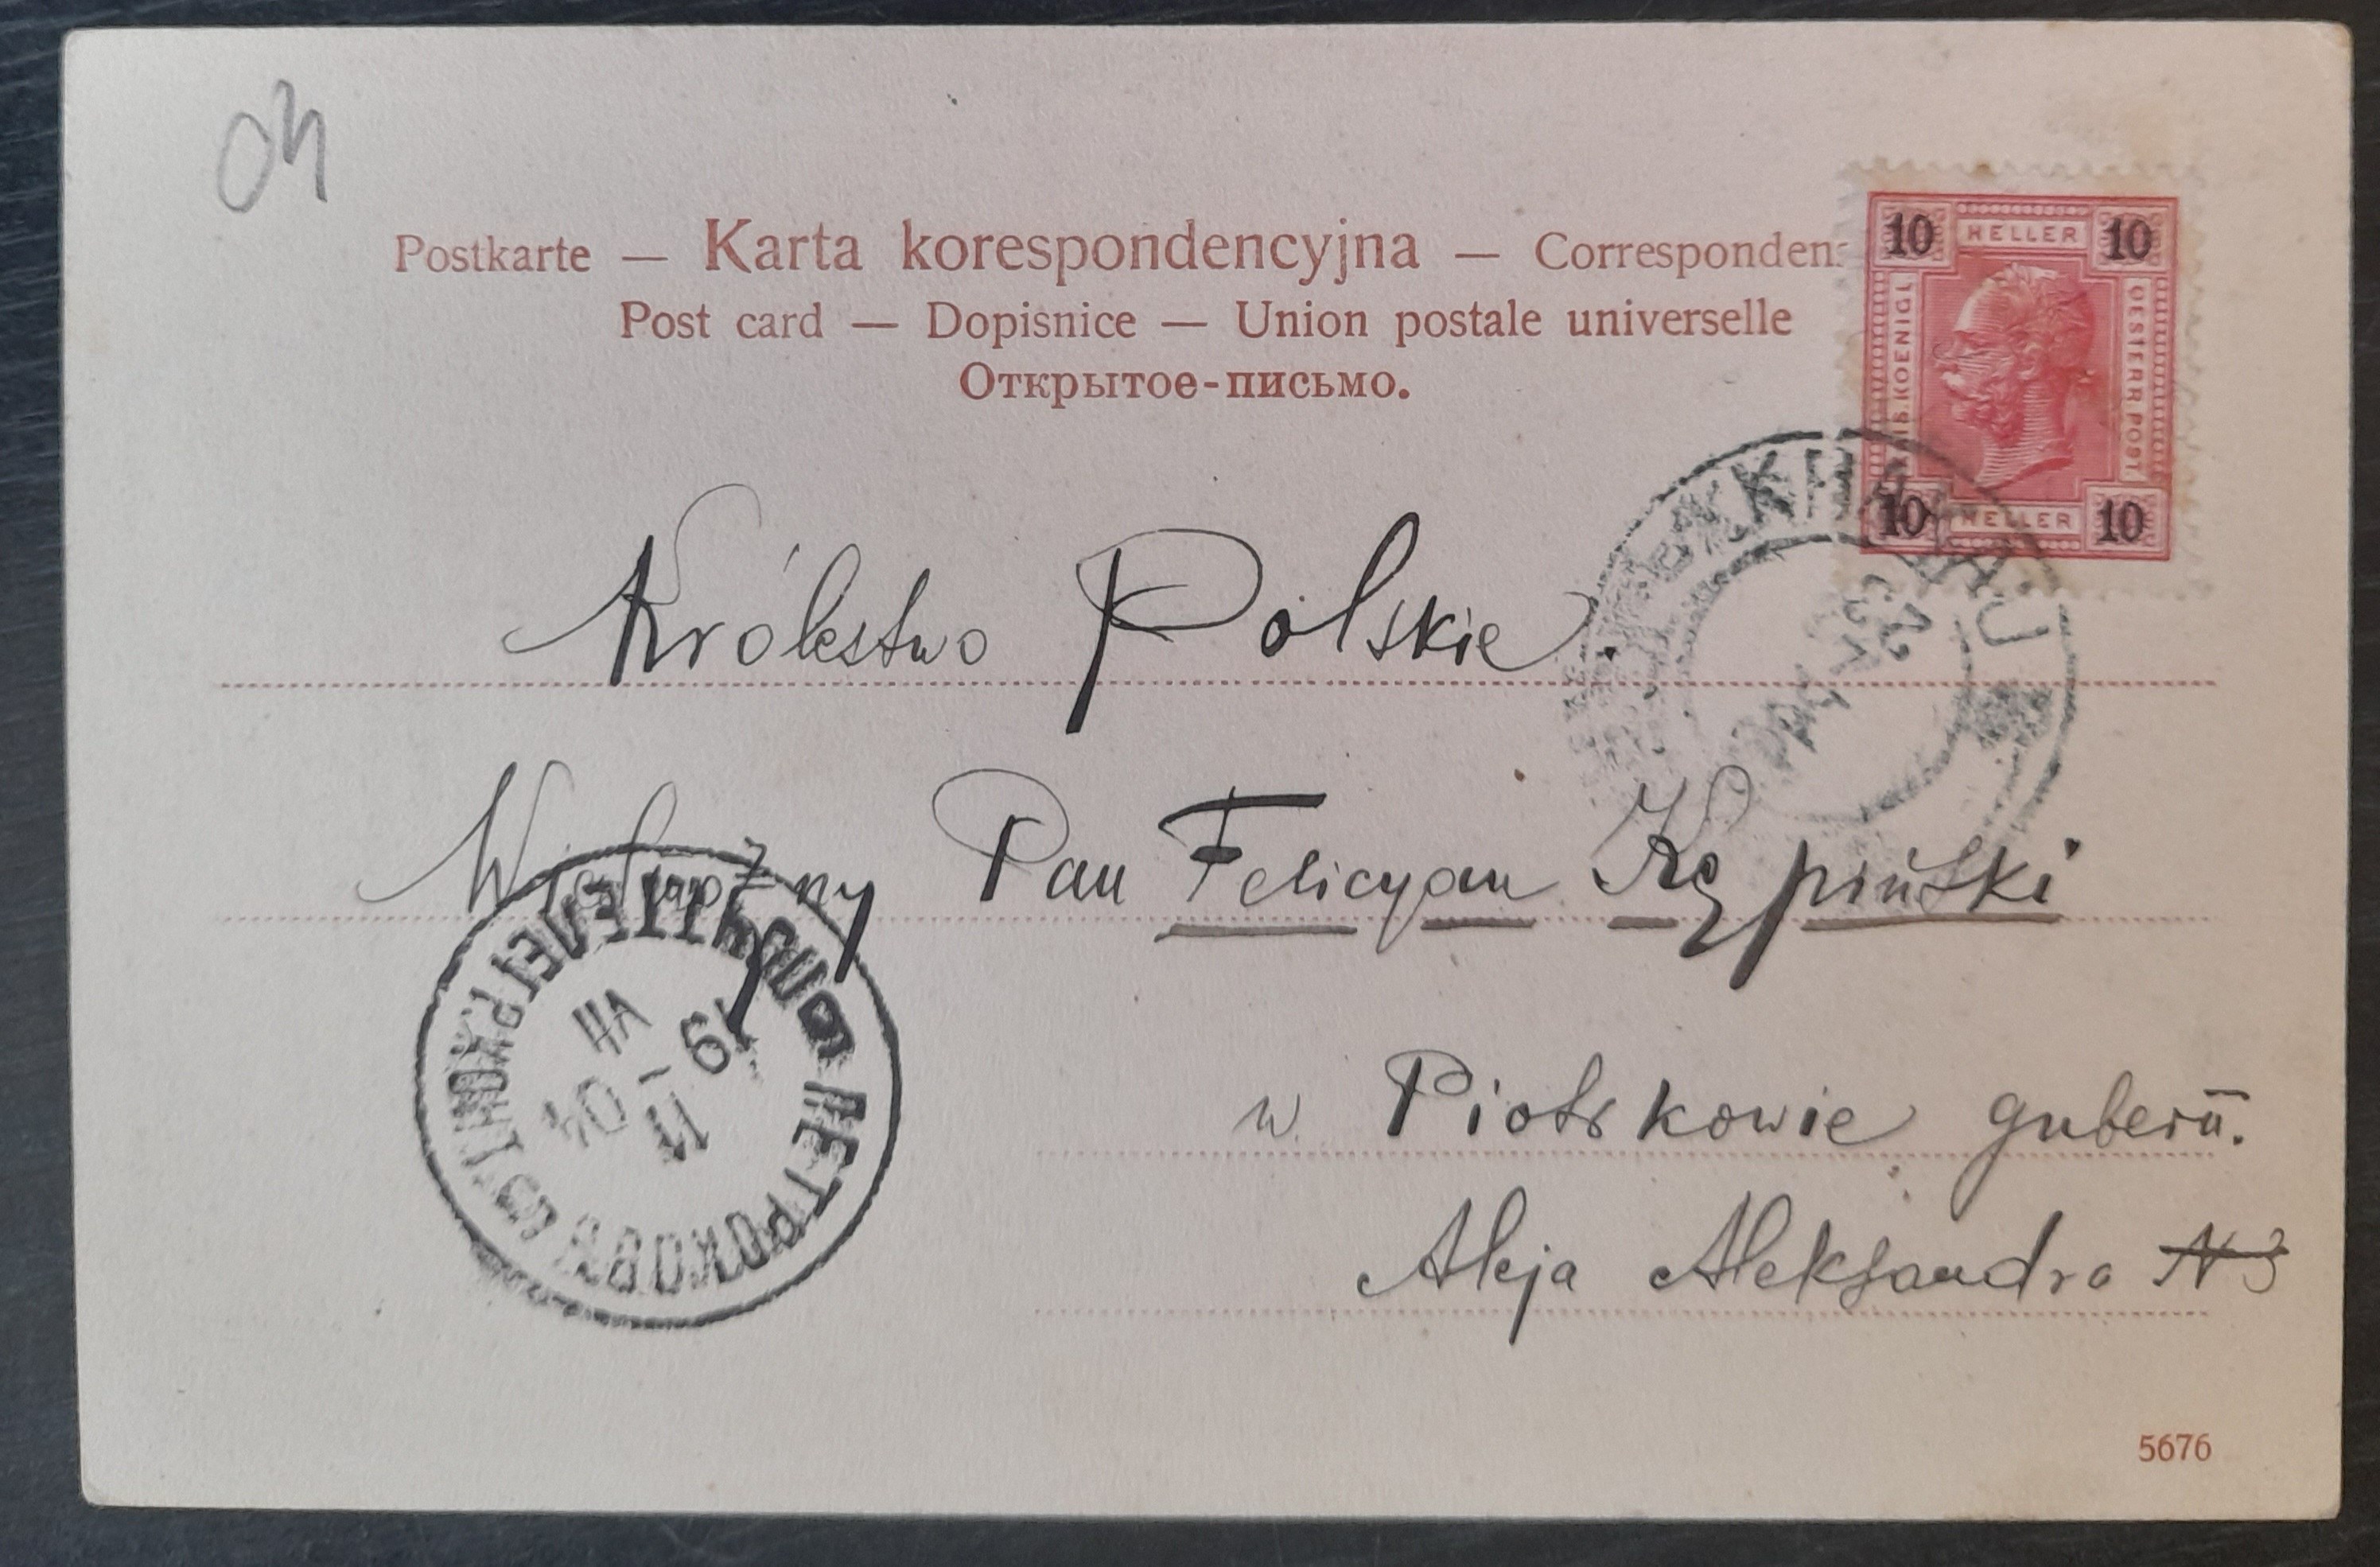 04
Postkarte — Karta korespondencyjna — Corresponden
Post card — Dopisnice — Union postale universelle
Открытое-письмо.
10 HELLER 10
KOENIGL
OESTERR POST
10 HELLER 10
Królestwo Polskie.
23 7
Wielmożny Pan Felicyan Kępiński
w Piotrkowie gubern̄.
Aleja Aleksandra N 3
ПЕТРОКОВЪ
19 VII 04
11
5676